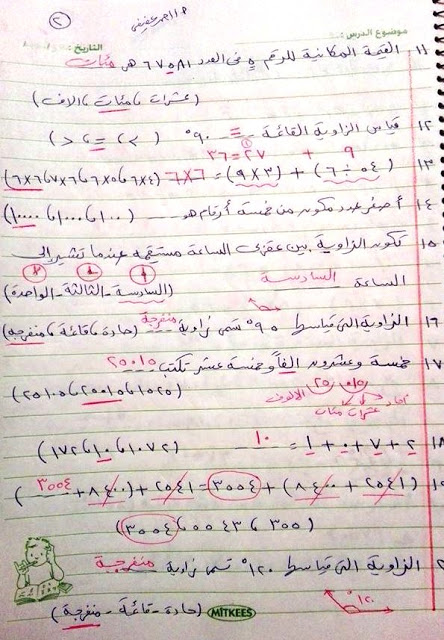 ٢
ا/احمد عفيفى
موضوع الدرس :
التاريخ :
١١ القيمة المكانية للرقم ٥ فى العدد ٦٧٥٨١ هى مئات
(عشرات ، مئات ، الاف)
١٢ قياس الزاوية القائمة = ٩٠° ( > ، = ، < )
٩ + ٢٧ = ٣٦
١٣ (٥٤ ÷ ٦) + (٣ × ٩) = ٦×٦ (٤×٦ ، ٥×٦ ، ٧×٦ ، ٦×٦)
١٤ أصغر عدد مكون من خمسة أرقام هو (١٠٠ ، ١٠٠٠ ، ١٠٠٠٠)
١٥ تكون الزاوية بين عقربى الساعة مستقيمة عندما تشير إلى
الساعة السادسة (السادسة - الثالثة - الواحدة)
١٦ الزاوية التى قياسها ٩٥° تسمى زاوية منفرجة (حادة ، قائمة ، منفرجة)
١٧ خمسة وعشرون الفاً وخمسة عشر تكتب ٢٥٠١٥
(١٥٢٥ ، ٢٥٠١٥ ، ٢٥١٠٥)
٢٥٠١٥
احاد عشرات مئات الالوف
١٨ ٢ + ٧ + ٠ + ١ = ١٠ (١٠٧٢ ، ١٠ ، ١٧٢)
(٢٥٤١ + ٨٤٠٠) + ٣٠٠٥٤ = ٢٥٤١ + (٨٤٠٠ + ٣٠٠٥٤)
(٣٠٠ ، ٣٠٠٥٤)
الزاوية التى قياسها ١٢٠° تسمى زاوية منفرجة
(حادة - قائمة - منفرجة)
١٢٠°
MITKEES